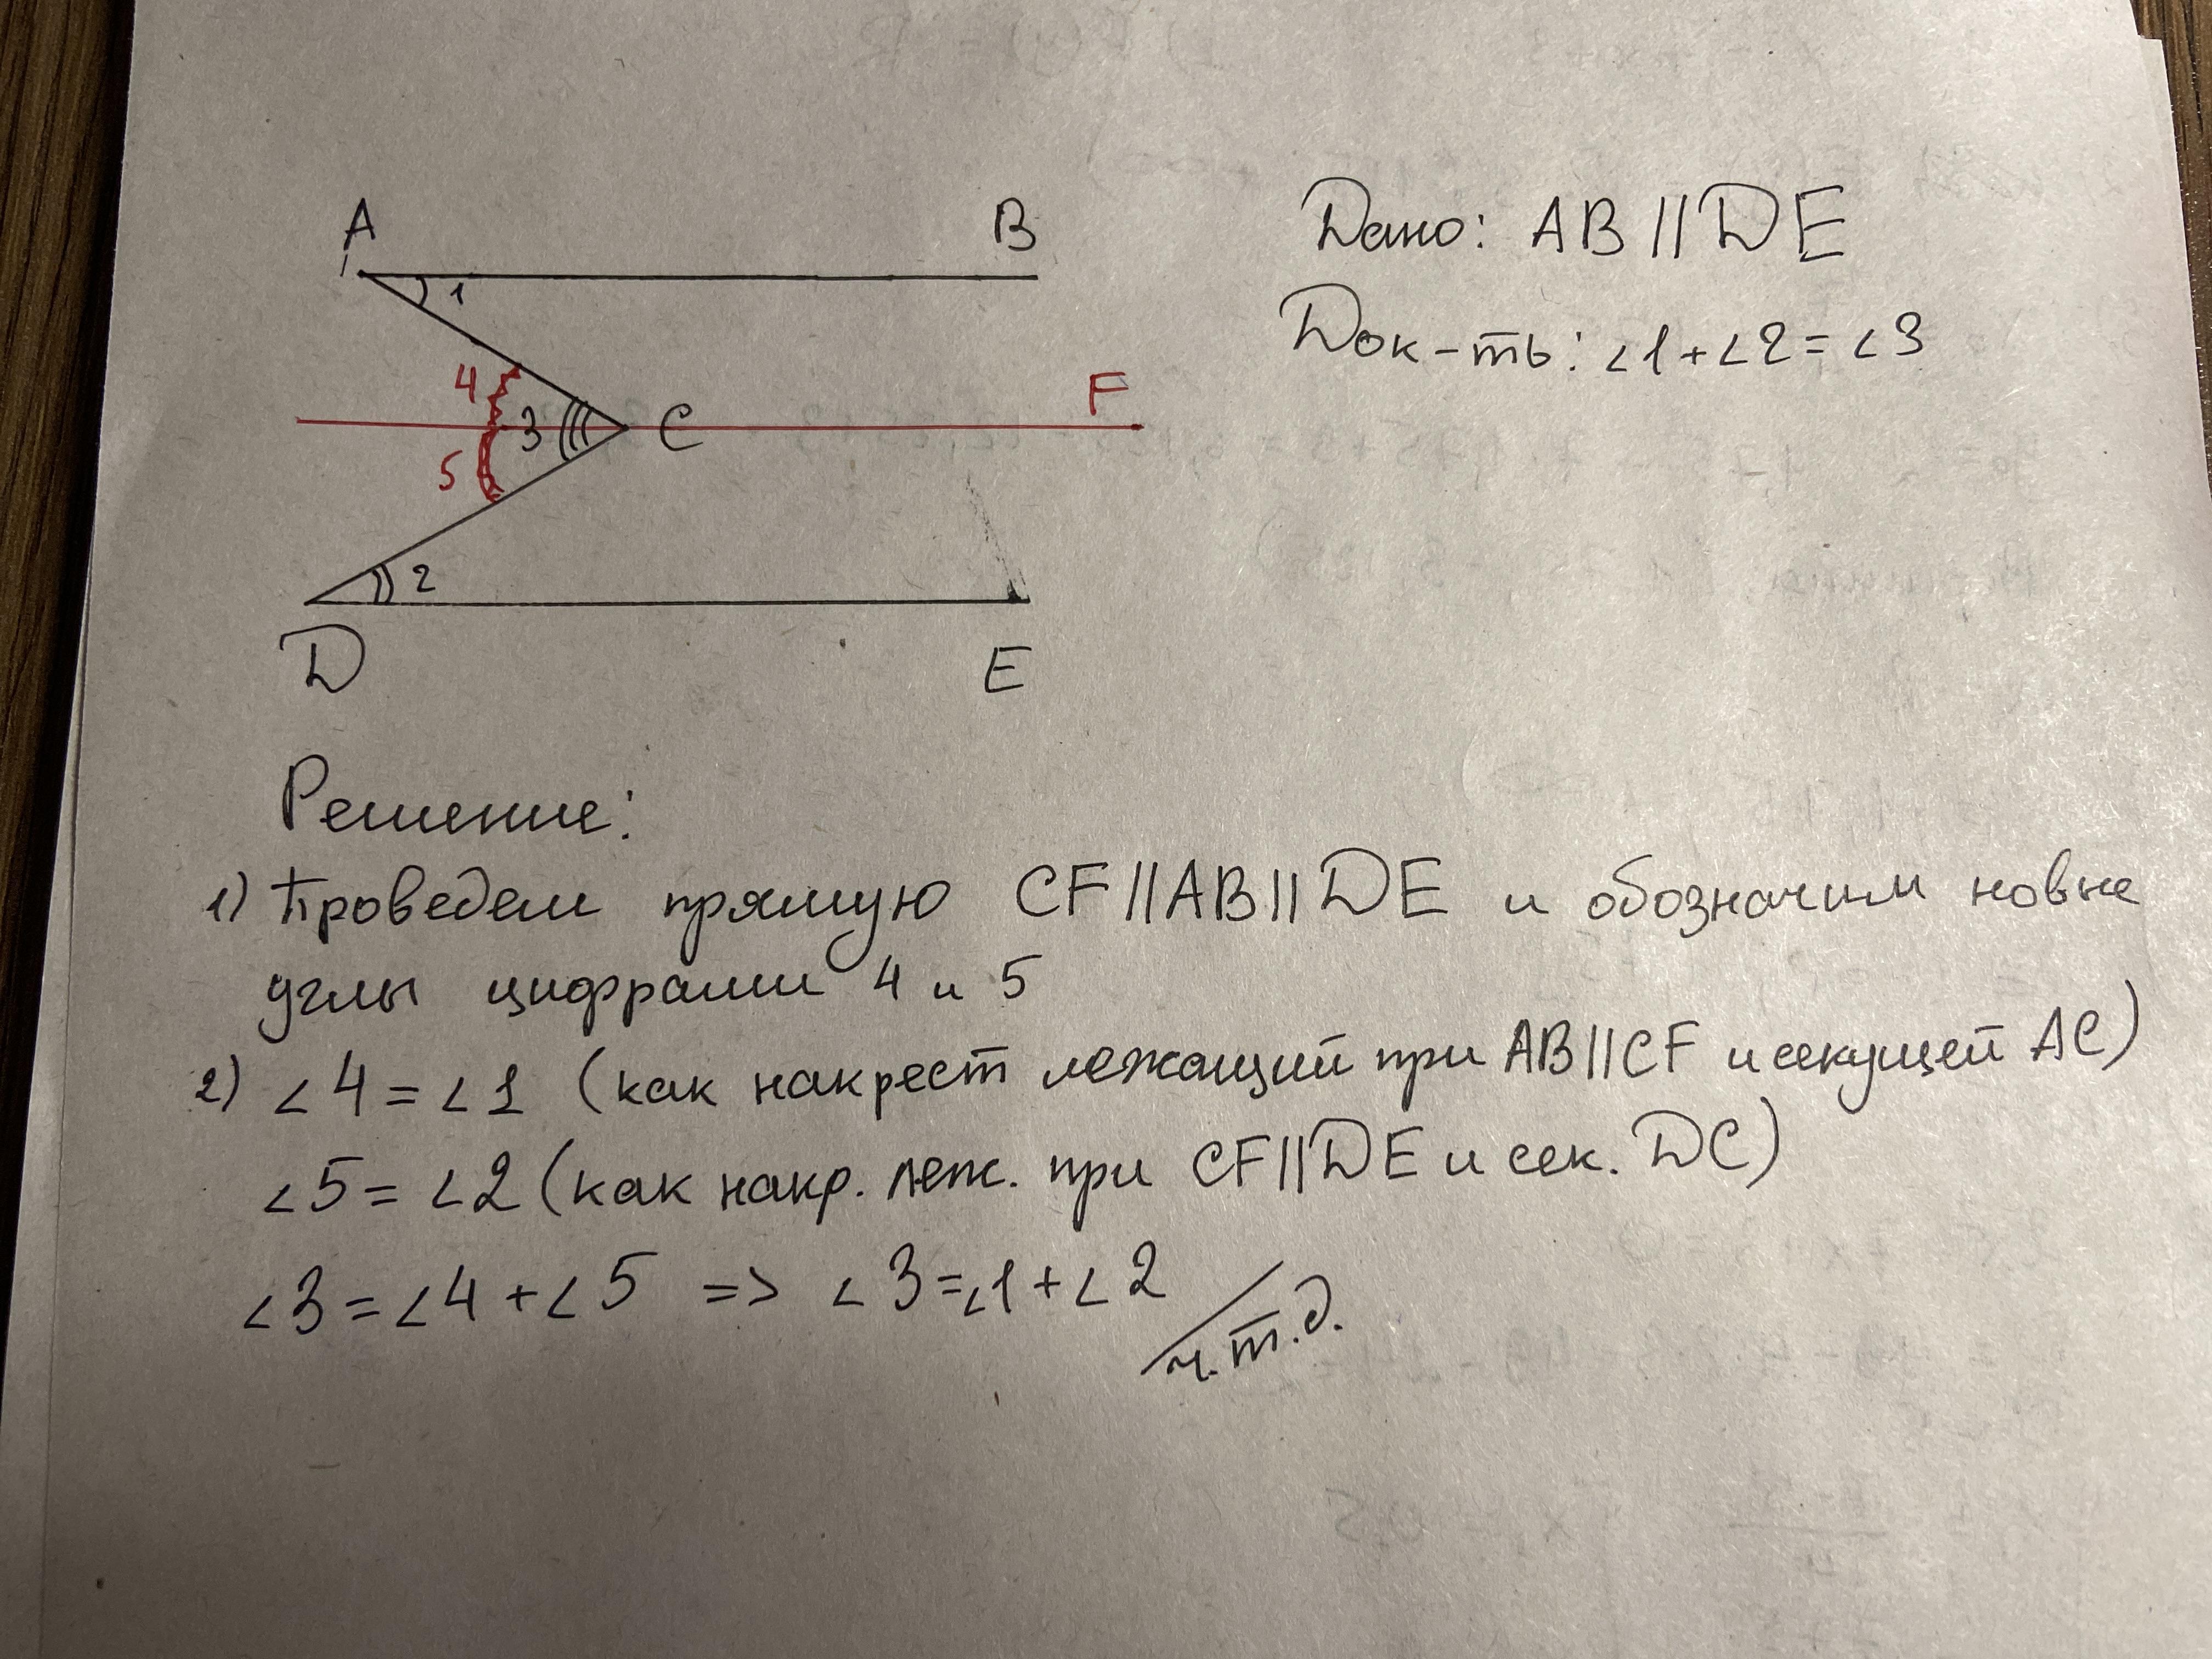 A
B
Дано: AB || DE
Док-ть: ∠1+∠2=∠3
1
4
3
C
F
5
2
D
E
Решение:
1) Проведем прямую CF || AB || DE и обозначим новые
углы цифрами 4 и 5
2) ∠4=∠1 (как накрест лежащий при AB||CF и секущей AC)
∠5=∠2 (как накр. леж. при CF||DE и сек. DC)
∠3=∠4+∠5 => ∠3=∠1+∠2
ч.т.д.